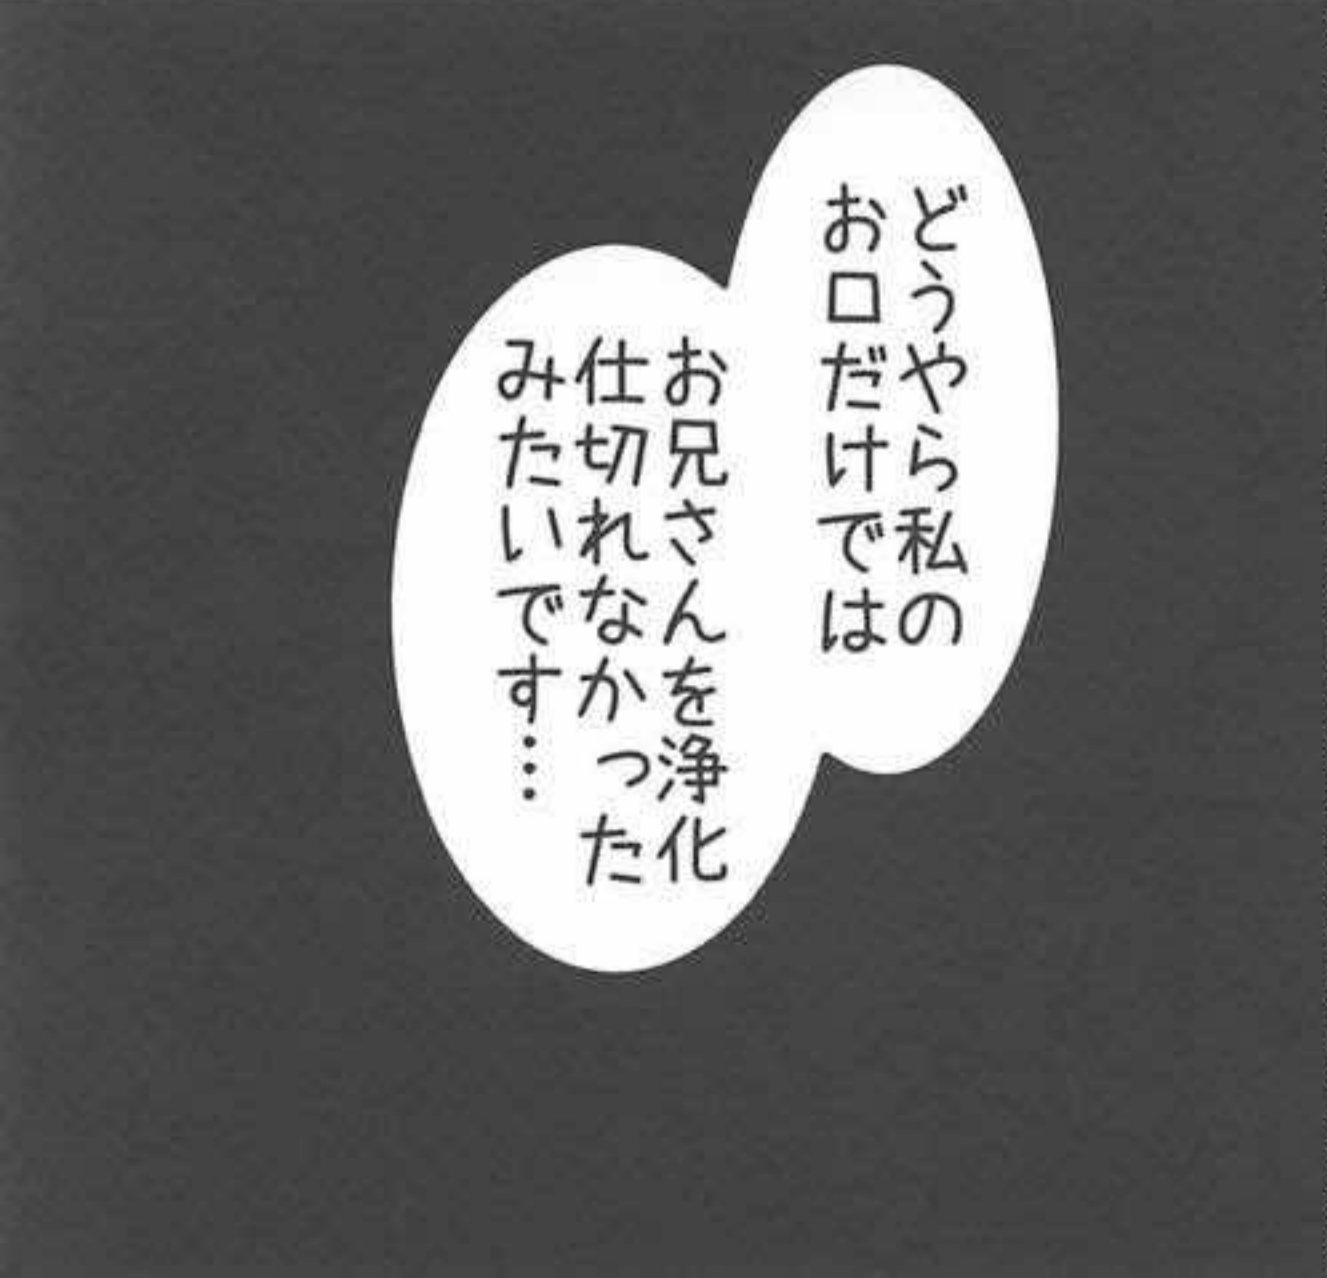 どうやら私の
お口だけでは
お兄さんを浄化
仕切れなかった
みたいです…